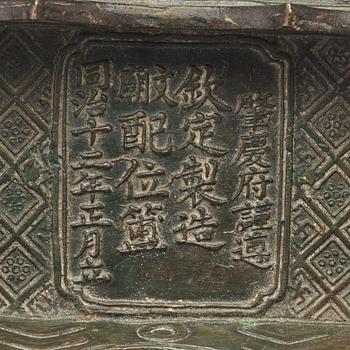 肇慶府謹遵
欽定製造
㢤配位簠
同治十二年正月立